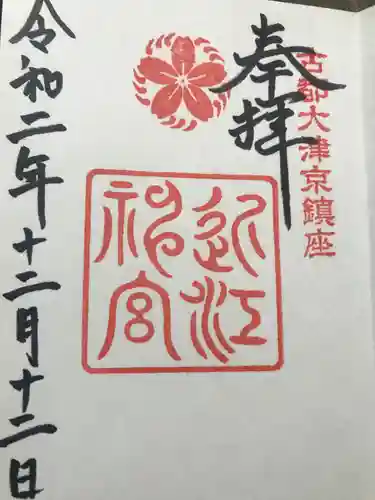 古都大津京鎮座
奉拝
近江神宮
令和二年十二月十二日